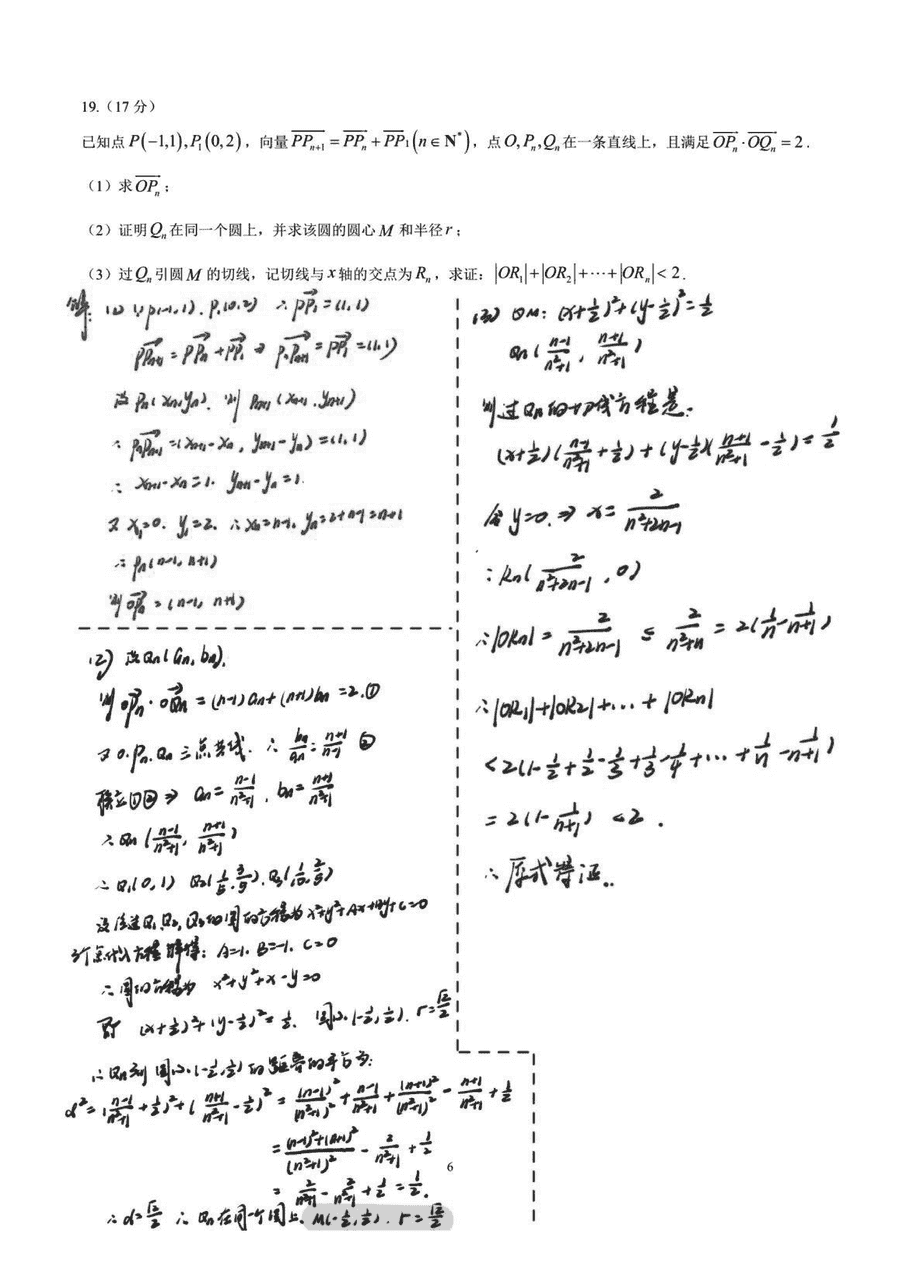 19.（17 分）
已知点 P(−1,1), P₁(0,2)，向量 PPₙ₊₁ = PPₙ + PP₁ (n∈N*)，点 O, Pₙ, Qₙ 在一条直线上，且满足 OPₙ·OQₙ = 2．
（1）求 OPₙ；
（2）证明 Qₙ 在同一个圆上，并求该圆的圆心 M 和半径 r；
（3）过 Qₙ 引圆 M 的切线，记切线与 x 轴的交点为 Rₙ，求证：|OR₁|+|OR₂|+⋯+|ORₙ|<2．
解：(1) ∵P(-1,1). P₁(0,2) ∴PP₁=(1,1)
PPₙ₊₁=PPₙ+PP₁ ⇒ PₙPₙ₊₁=PP₁=(1,1)
设Pₙ(xₙ,yₙ). 则Pₙ₊₁(xₙ₊₁,yₙ₊₁)
∴PₙPₙ₊₁=(xₙ₊₁-xₙ, yₙ₊₁-yₙ)=(1,1)
∴xₙ₊₁-xₙ=1. yₙ₊₁-yₙ=1
又x₁=0. y₁=2. ∴xₙ=n-1, yₙ=2+n-1=n+1
∴Pₙ(n-1, n+1)
则OPₙ=(n-1, n+1)
(2) 设Qₙ(aₙ, bₙ).
则OPₙ·OQₙ=(n-1)aₙ+(n+1)bₙ=2.①
又O.Pₙ.Qₙ三点共线. ∴bₙ/aₙ=(n+1)/(n-1) ②
联立①②⇒ aₙ=(n-1)/(n²+1), bₙ=(n+1)/(n²+1)
∴Qₙ((n-1)/(n²+1), (n+1)/(n²+1))
∴Q₁(0,1) Q₂(1/5,3/5). Q₃(1/5,2/5)
设经过Q₁,Q₂,Q₃的圆的方程为x²+y²+Ax+By+C=0
3个点代入方程解得：A=1. B=-1. C=0
∴圆的方程为 x²+y²+x-y=0
即 (x+1/2)²+(y-1/2)²=1/2. 圆心(-1/2,1/2). r=√2/2
∴Qₙ到圆心(-1/2,1/2)的距离的平方为：
d²=((n-1)/(n²+1)+1/2)²+((n+1)/(n²+1)-1/2)²=(n-1)²/(n²+1)²+(n-1)/(n²+1)+(n+1)²/(n²+1)²-(n+1)/(n²+1)+1/2
=((n-1)²+(n+1)²)/(n²+1)²-2/(n²+1)+1/2
=2/(n²+1)-2/(n²+1)+1/2=1/2.
∴d=√2/2 ∴Qₙ在同一个圆上. M(-1/2,1/2). r=√2/2
(3) ⊙M: (x+1/2)²+(y-1/2)²=1/2
Qₙ((n-1)/(n²+1), (n+1)/(n²+1))
则过Qₙ的切线方程是：
(x+1/2)((n-1)/(n²+1)+1/2)+(y-1/2)((n+1)/(n²+1)-1/2)=1/2
令y=0.⇒ x=2/(n²+2n-1)
∴Rₙ(2/(n²+2n-1), 0)
∴|ORₙ|=2/(n²+2n-1)≤2/(n²+n)=2(1/n-1/(n+1))
∴|OR₁|+|OR₂|+...+|ORₙ|
<2(1-1/2+1/2-1/3+1/3-1/4+...+1/n-1/(n+1))
=2(1-1/(n+1))<2.
∴原式得证..
6